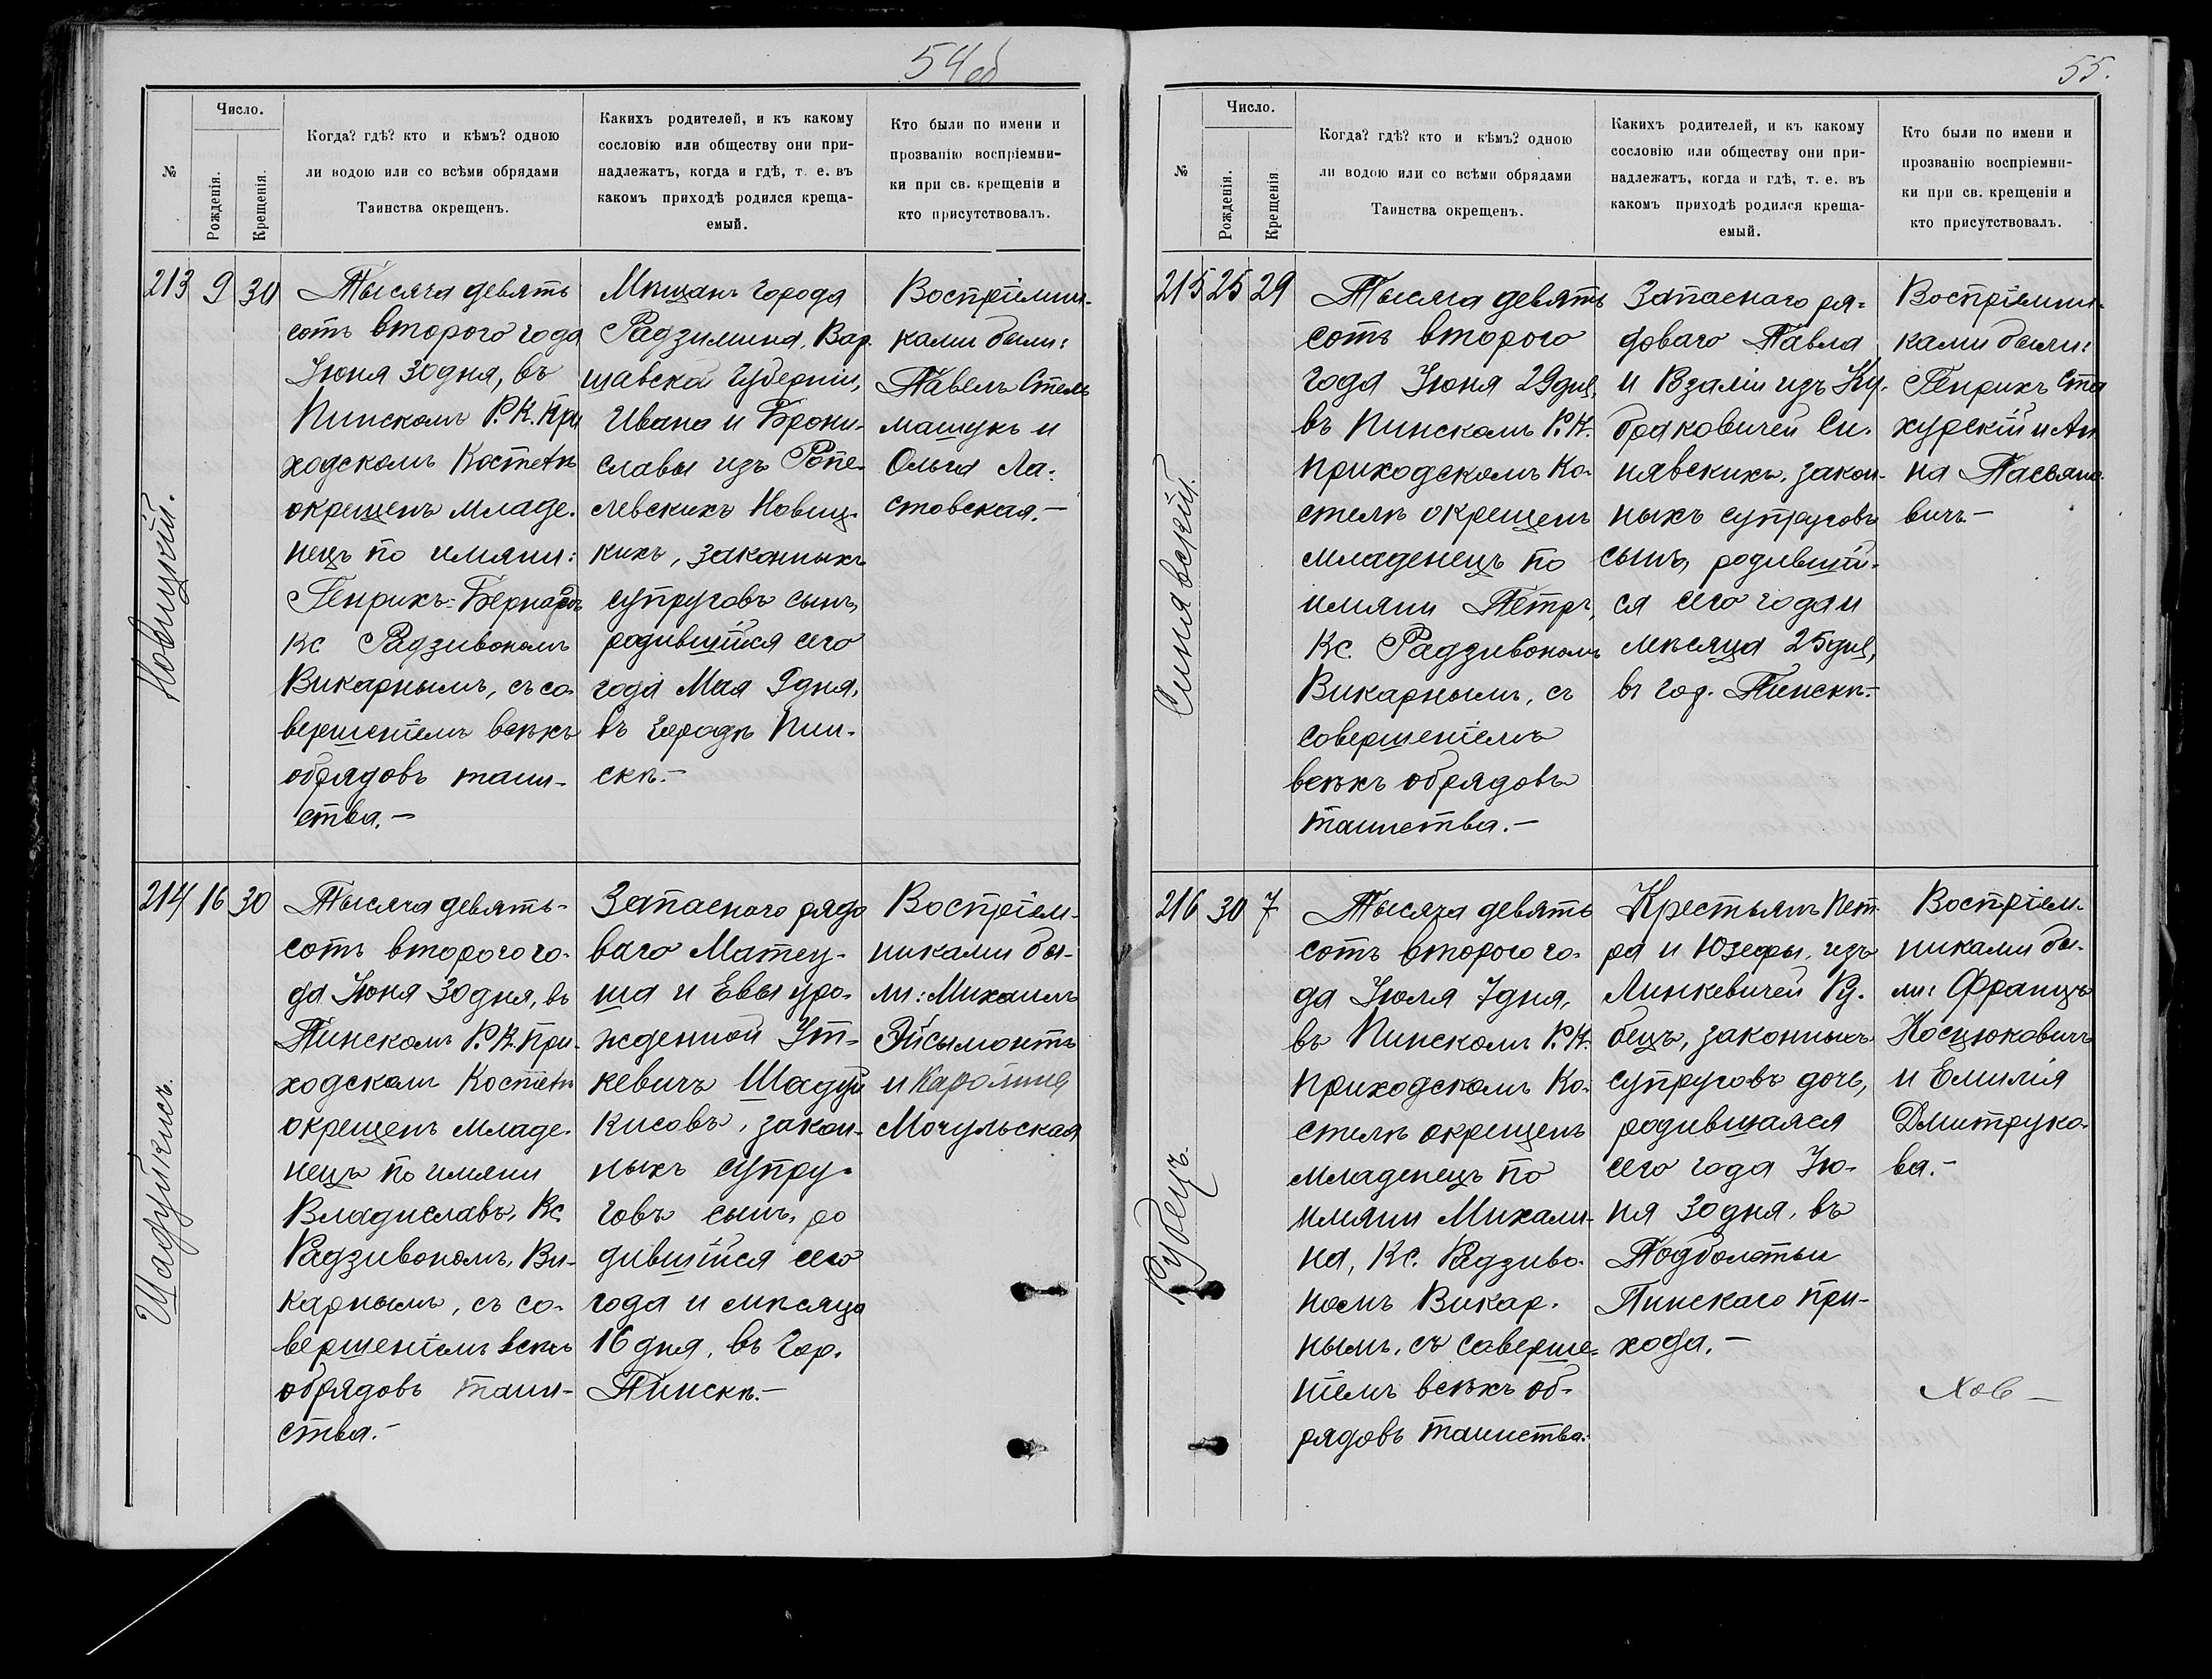 54 об
№
Число.
Рожденія.
Крещенія.
Когда? гдѣ? кто и кѣмъ? одною
ли водою или со всѣми обрядами
Таинства окрещенъ.
Какихъ родителей, и къ какому
сословію или обществу они при-
надлежатъ, когда и гдѣ, т. е. въ
какомъ приходѣ родился креща-
емый.
Кто были по имени и
прозванію воспріемни-
ки при св. крещеніи и
кто присутствовалъ.
213 9 30
Новицкій.
Тысяча девять
сотъ второго года
Іюня 30 дня, въ
Пинскомъ Р. К. При
ходскомъ Костелѣ
окрещенъ младе-
нецъ по имяни:
Генрихъ-Бернардъ
Кс Радзивономъ
Викарнымъ, съ со
вершеніемъ всѣхъ
обрядовъ таин-
ства.—
Мѣщанъ города
Радзимина, Вар-
шавской Губерніи,
Ивана и Брони-
славы изъ Ропе-
левскихъ Новиц-
кихъ, законныхъ
супруговъ сынъ,
родившійся сего
года Мая 9 дня,
въ городѣ Пин-
скѣ.—
Воспріемни-
ками были:
Павелъ Стель
машукъ и
Ольга Ла-
стовская.—
214 16 30
Шадуйкисъ.
Тысяча девять-
сотъ второго го-
да Іюня 30 дня, въ
Пинскомъ Р. К. При-
ходскомъ Костелѣ
окрещенъ младе-
нецъ по имяни
Владиславъ, Кс.
Радзивономъ, Ви-
карнымъ, съ со-
вершеніемъ всѣхъ
обрядовъ таин-
ства.—
Запаснаго рядо
ваго Матеу-
ша и Евы уро-
жденной Ут-
кевичъ Шадуй
кисовъ, закон-
ныхъ супру-
говъ сынъ, ро
дившійся сего
года и мѣсяца
16 дня, въ Гор.
Пинскѣ.—
Воспріем-
никами бы-
ли: Михаилъ
Эйсымонтъ
и Каролина
Мочульская
55.
№
Число.
Рожденія.
Крещенія.
Когда? гдѣ? кто и кѣмъ? одною
ли водою или со всѣми обрядами
Таинства окрещенъ.
Какихъ родителей, и къ какому
сословію или обществу они при-
надлежатъ, когда и гдѣ, т. е. въ
какомъ приходѣ родился креща-
емый.
Кто были по имени и
прозванію воспріемни-
ки при св. крещеніи и
кто присутствовалъ.
215 25 29
Синявскій.
Тысяча девять
сотъ второго
года Іюня 29 дня,
въ Пинскомъ Р. К.
приходскомъ Ко-
стелѣ окрещенъ
младенецъ по
имяни Петръ,
Кс. Радзивономъ
Викарнымъ, съ
совершеніемъ
всѣхъ обрядовъ
таинства.—
Запаснаго ря-
доваго Павла
и Розаліи изъ Ку-
браковичей Си-
нявскихъ, закон-
ныхъ супруговъ
сынъ, родившій-
ся сего года и
мѣсяца 25 дня,
въ гор. Пинскѣ.—
Воспріемни-
ками были:
Генрихъ Ста
хурскій и Ан
на Пасьяно-
вичъ.—
216 30 7
Рубецъ.
Тысяча девять
сотъ второго го-
да Іюля 7 дня,
въ Пинскомъ Р. К.
приходскомъ Ко-
стелѣ окрещенъ
младенецъ по
имяни Михали-
на, Кс. Радзиво-
номъ Викар-
нымъ, съ соверше-
ніемъ всѣхъ об-
рядовъ таинства.
Крестьянъ Пет-
ра и Юзефы, изъ
Линкевичей Ру-
бецъ, законныхъ
супруговъ дочь,
родившаяся
сего года Ію-
ня 30 дня, въ
Подболотьи
Пинскаго при-
хода.—
Воспріем-
никами бы-
ли: Францъ
Косцюковичъ
и Емилія
Дмитруко-
ва.—